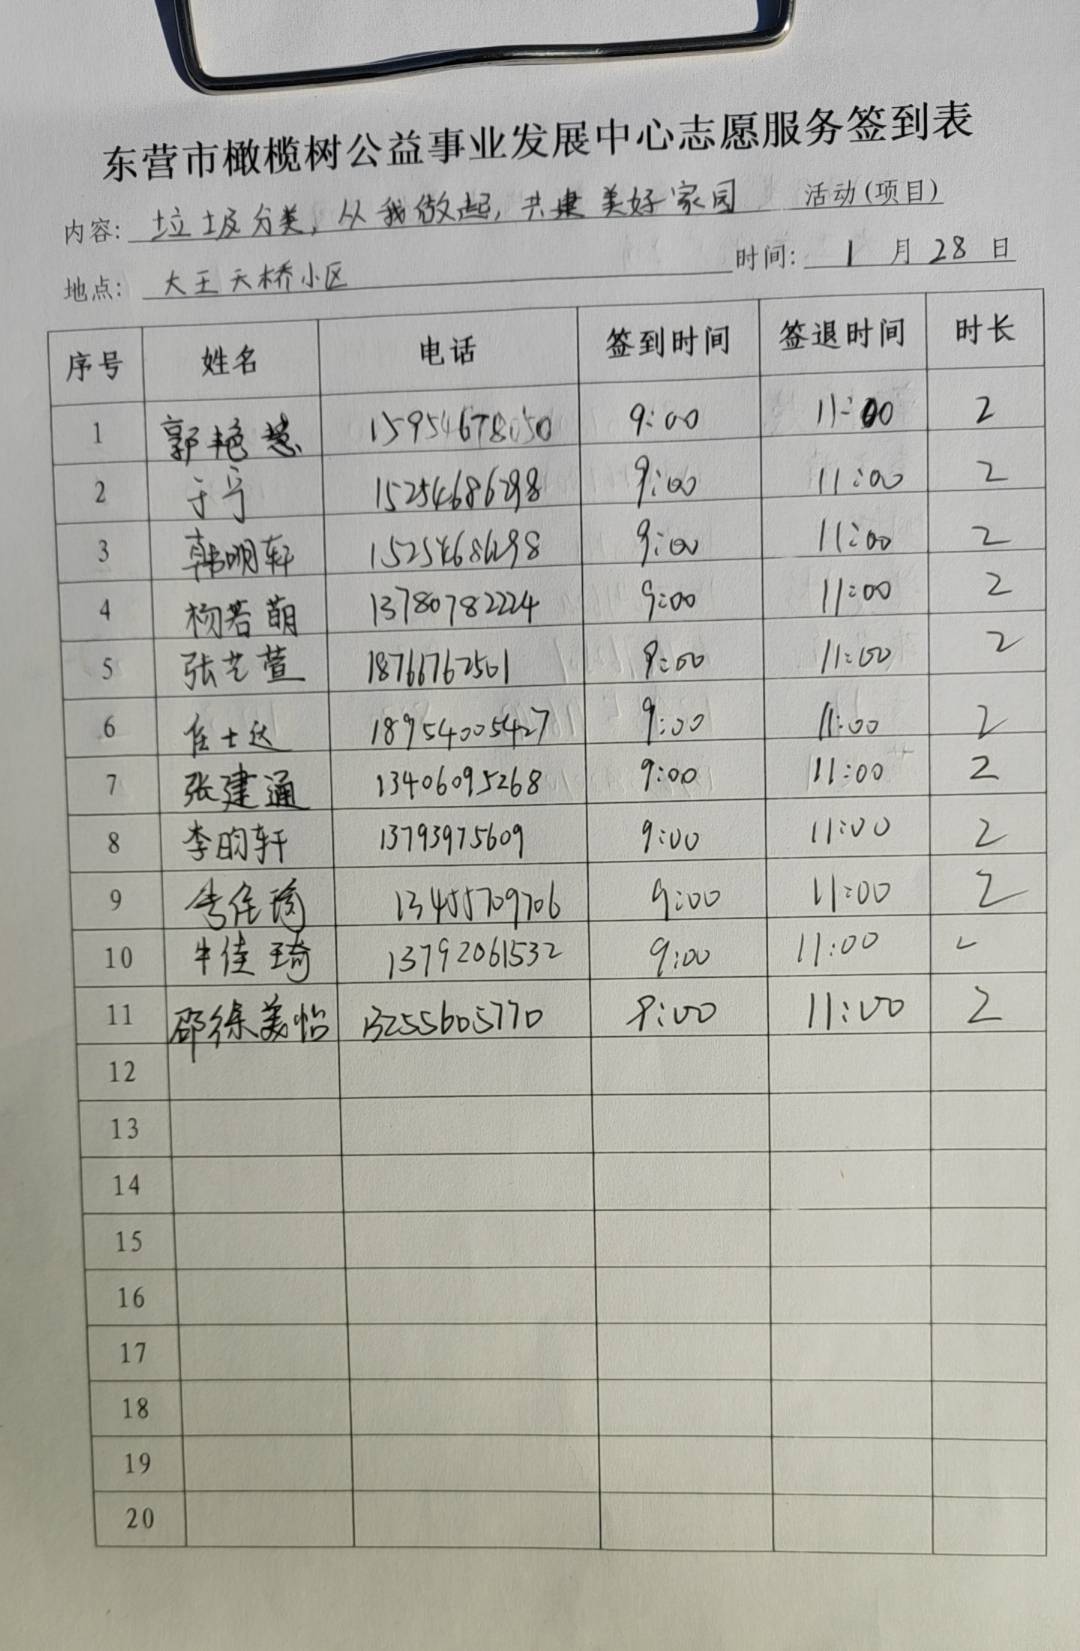 东营市橄榄树公益事业发展中心志愿服务签到表
内容: 垃圾分类,从我做起,共建美好家园 活动(项目)
地点: 大王天桥小区 时间: 1月28日
序号 姓名 电话 签到时间 签退时间 时长
1 郭艳慧 15954678050 9:00 11:00 2
2 于宁 15254686298 9:00 11:00 2
3 韩明轩 15254686298 9:00 11:00 2
4 杨若萌 13780782224 9:00 11:00 2
5 张艺萱 18761762501 9:00 11:00 2
6 士达 18954005427 9:00 11:00 2
7 张建通 13406095268 9:00 11:00 2
8 李昀轩 13793975609 9:00 11:00 2
9 13455709706 9:00 11:00 2
10 牛佳琦 13792061532 9:00 11:00
11 邵徐美怡 13255605770 9:00 11:00 2
12
13
14
15
16
17
18
19
20